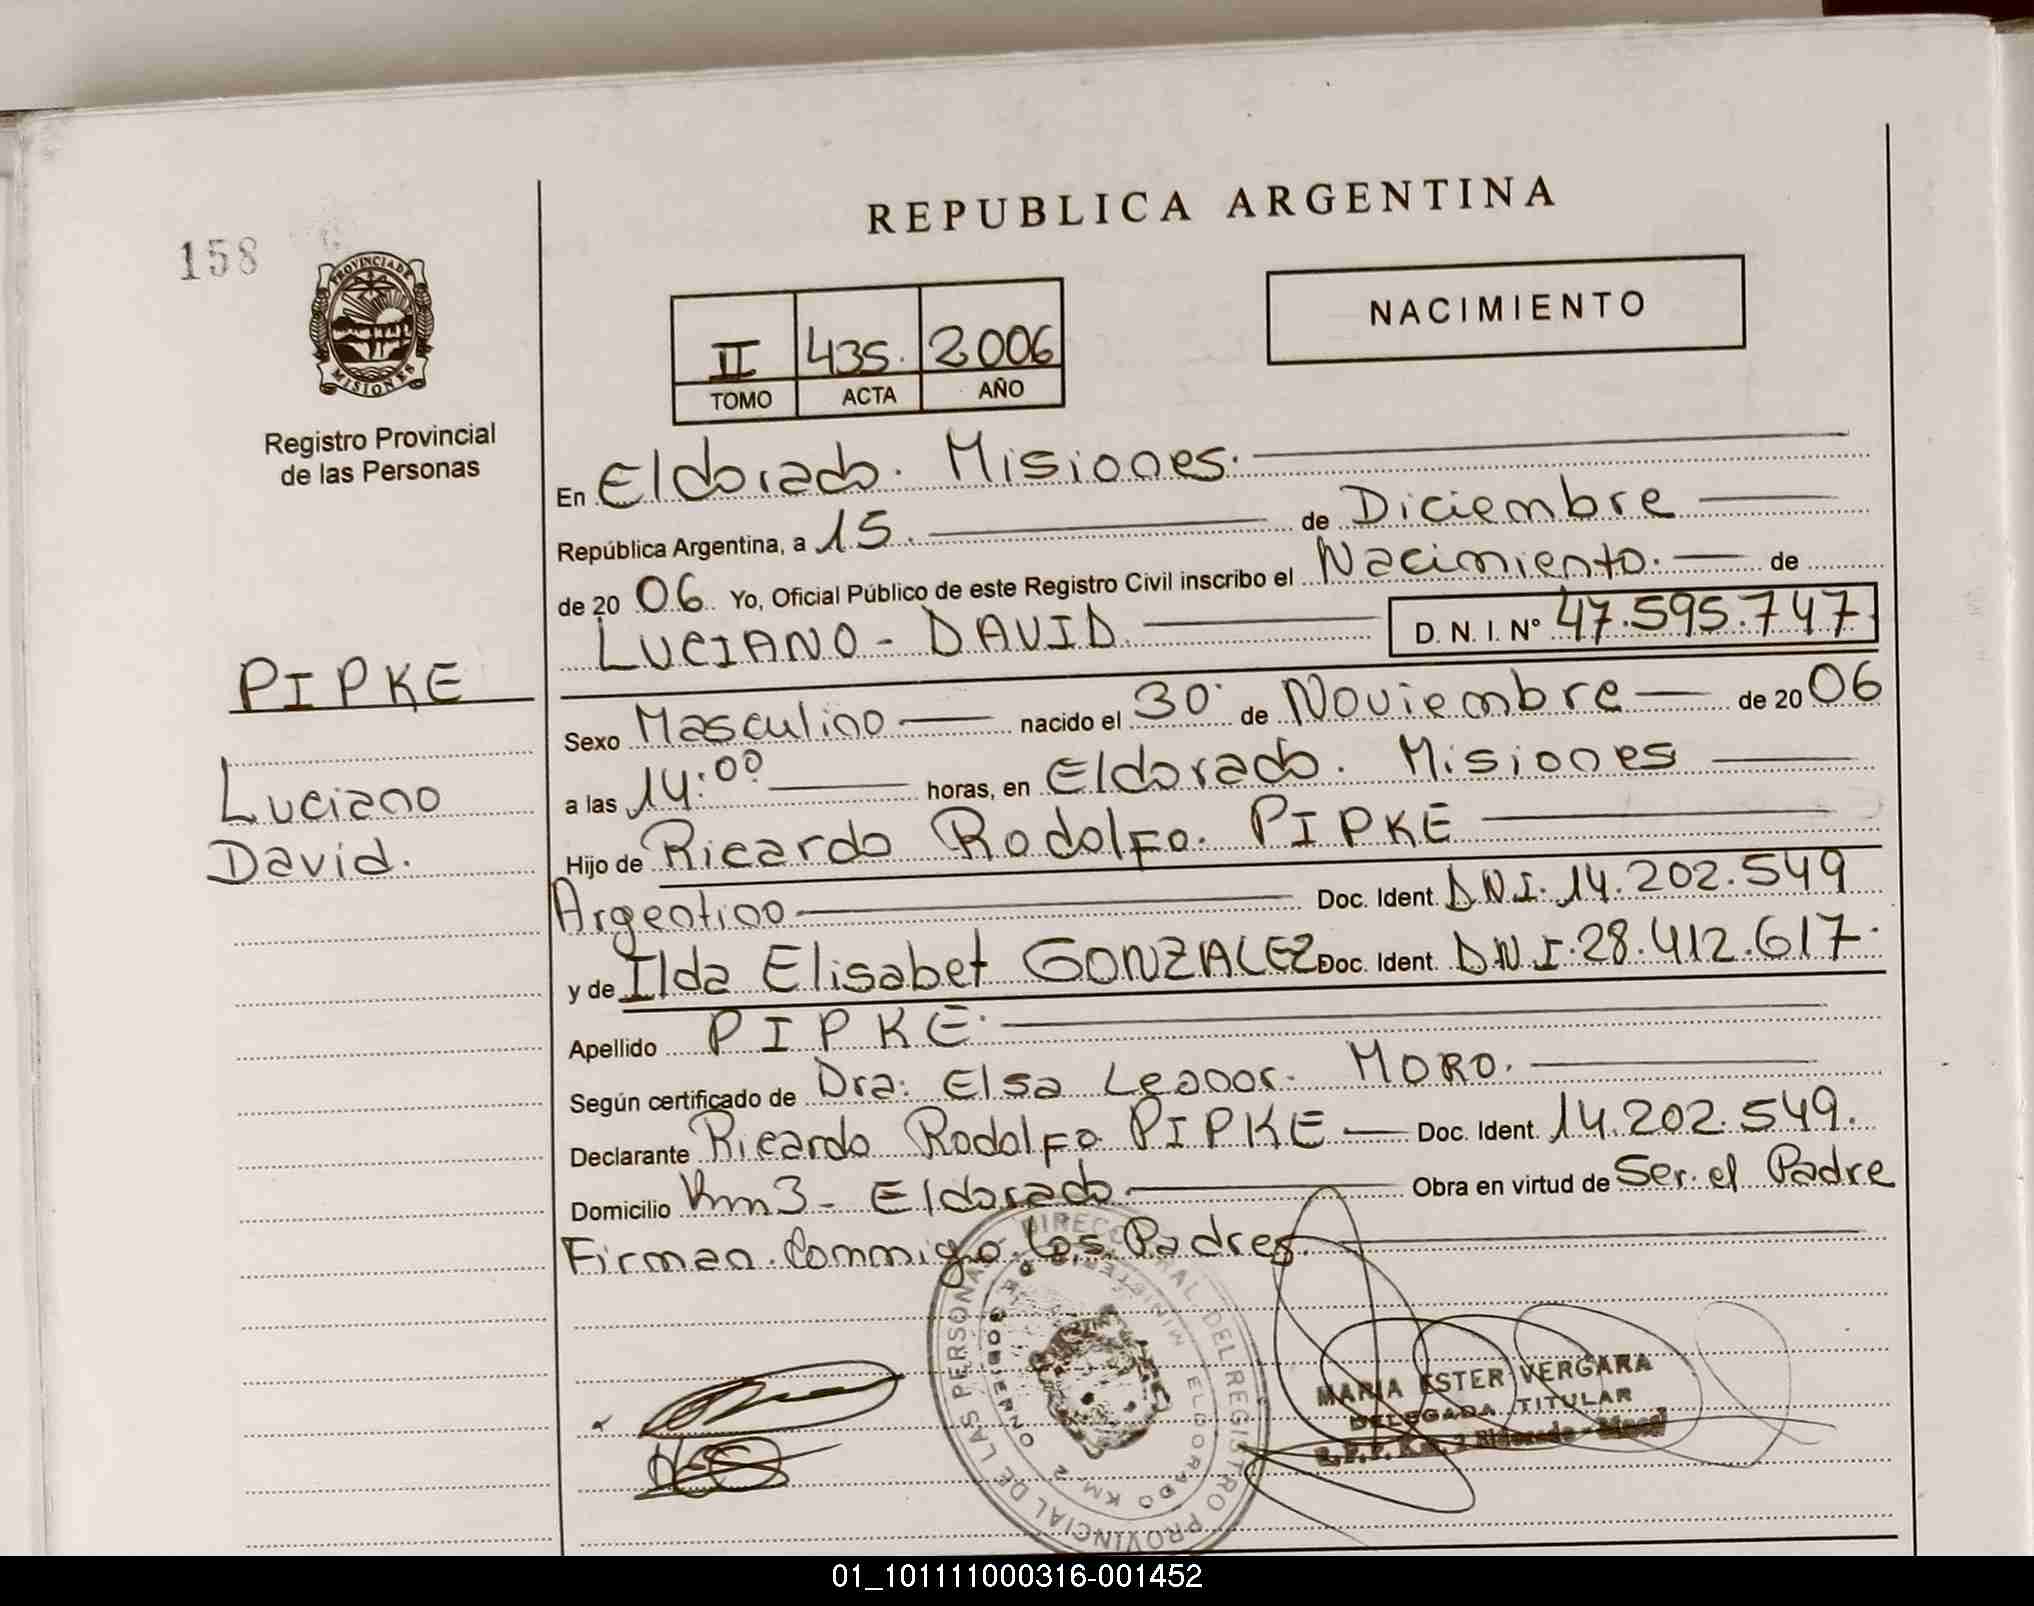 REPUBLICA ARGENTINA
158
PROVINCIA DE
MISIONES
Registro Provincial
de las Personas
II 435. 2006
TOMO ACTA AÑO
NACIMIENTO
En Eldorado. Misiones.
República Argentina, a 15. de Diciembre
de 20 06 Yo, Oficial Público de este Registro Civil inscribo el Nacimiento. de
LUCIANO - DAVID. D. N. I. Nº 47.595.747
PIPKE
Luciano
David.
Sexo Masculino nacido el 30 de Noviembre de 20 06
a las 14:00 horas, en Eldorado. Misiones
Hijo de Ricardo Rodolfo. PIPKE
Argentino Doc. Ident. D.N.I. 14.202.549
y de Ilda Elisabet GONZALEZ Doc. Ident. D.N.I. 28.412.617.
Apellido PIPKE.
Según certificado de Dra: Elsa Leonor. MORO.
Declarante Ricardo Rodolfo PIPKE Doc. Ident. 14.202.549.
Domicilio Km3 - Eldorado Obra en virtud de Ser el Padre
Firman Commigo los Padres.
DIRECC RAL DEL REGISTRO PROVINCIAL DE LAS PERSONAS
MINISTERIO GOBIERNO ELDORADO KM 2
MARIA ESTER VERGARA
DELEGADA TITULAR
R.P.P. Km. 2 Eldorado -
01_101111000316-001452